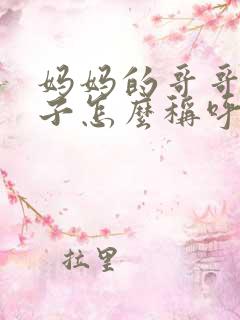 妈妈的哥哥
子怎麼稱呼
拉里